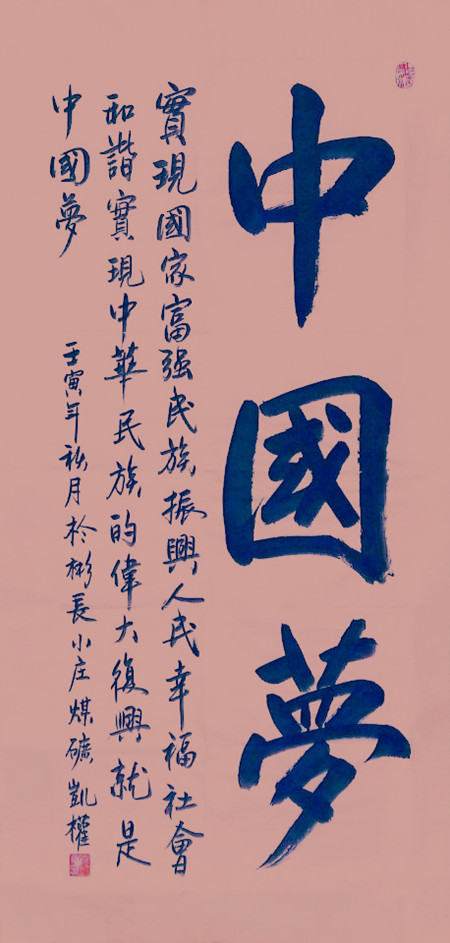 中國夢
實現國家富强民族振興人民幸福社會
和諧實現中華民族的偉大復興就是
中國夢
壬寅年秋月於彬長小庄煤礦凱權